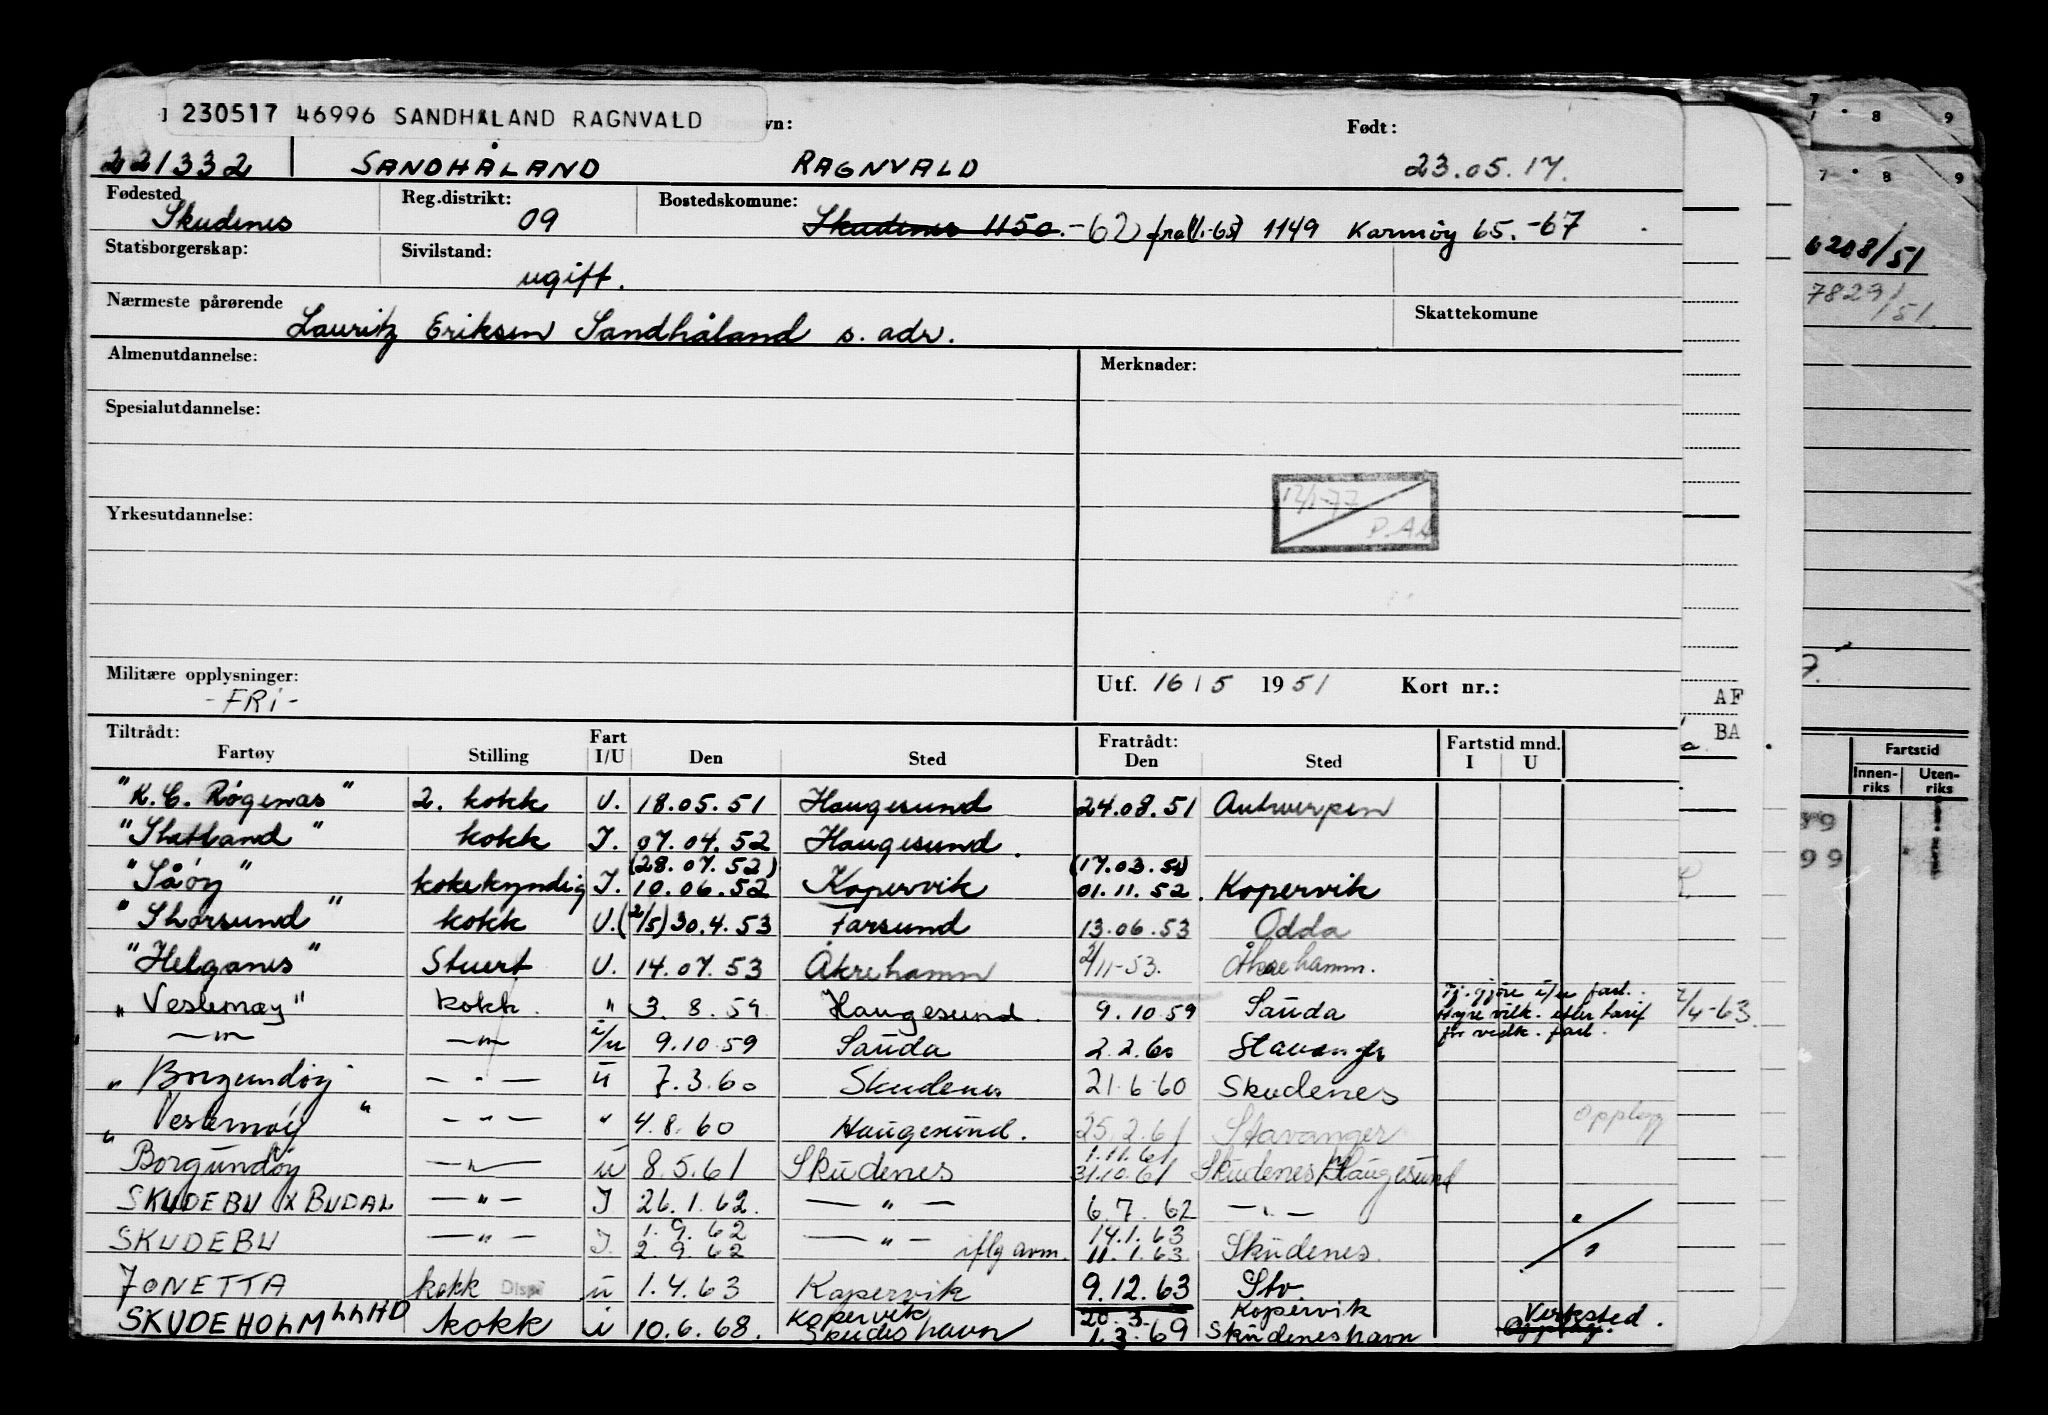 230517 46996 SANDHÅLAND RAGNVALD
Født:
221332 SANDHÅLAND RAGNVALD 23.05.17.
Fødested Reg.distrikt: Bostedskomune:
Skudenes 09 Skudenes 1150.-62 fra 1149 Karmøy 65.-67
Statsborgerskap: Sivilstand:
ugift.
Nærmeste pårørende Skattekomune
Lauritz Eriksen Sandhåland s. adr.
Almenutdannelse: Merknader:
Spesialutdannelse:
12/1-77
Yrkesutdannelse:
Militære opplysninger: Utf. 16/5 1951 Kort nr.:
-FRI-
Tiltrådt: Fratrådt:
Fartøy Stilling Fart I/U Den Sted Den Sted Fartstid mnd. I U
"K.C. Røgenæs" 2. kokk U. 18.05.51 Haugesund 24.08.51 Antwerpen
"Shetland" kokk I. 07.04.52 Haugesund.
(28.07.52)
"Såøy" kokekyndig I. 10.06.52 Kopervik 01.11.52. Kopervik
"Thorsund" kokk U. (2/5) 30.4.53 Farsund 13.06.53 Odda
"Helganes" Stuert U. 14.07.53 Åkrehamn 2/11-53. Åkrehamn.
"Vestemøy" kokk. " 3.8.59 Haugesund. 9.10.59 Sauda
—"— —"— i/u 9.10.59 Sauda 2.2.60 Stavanger
"Borgundøy —"— u 7.3.60 Skudenes 21.6.60 Skudenes
"Vestemøy" —"— " 4.8.60 Haugesund. 25.2.61 Stavanger opplegg
1.11.61
Borgundøy —"— u 8.5.61 Skudenes 31.10.61 Skudenes/Haugesund
SKUDEBU X BUDAL —"— I 26.1.62. —"— 6.7.62 —"— "
1.9.62 14.1.63
SKUDEBU —"— I. 2.9.62 —"— iflg avm. 11.1.63 Skudenes. "
JONETTA kokk u 1.4.63 Kopervik 9.12.63 Stv
Kopervik 20.3. Kopervik Verksted.
SKUDEHOLM LLHD kokk i 10.6.68. Skudeshavn 1.3.69 Skudeneshavn
7 8 9
7 8 9
6208/51
7829/51.
AF
BA
2/4-63
Fartstid
Innenriks Utenriks
99